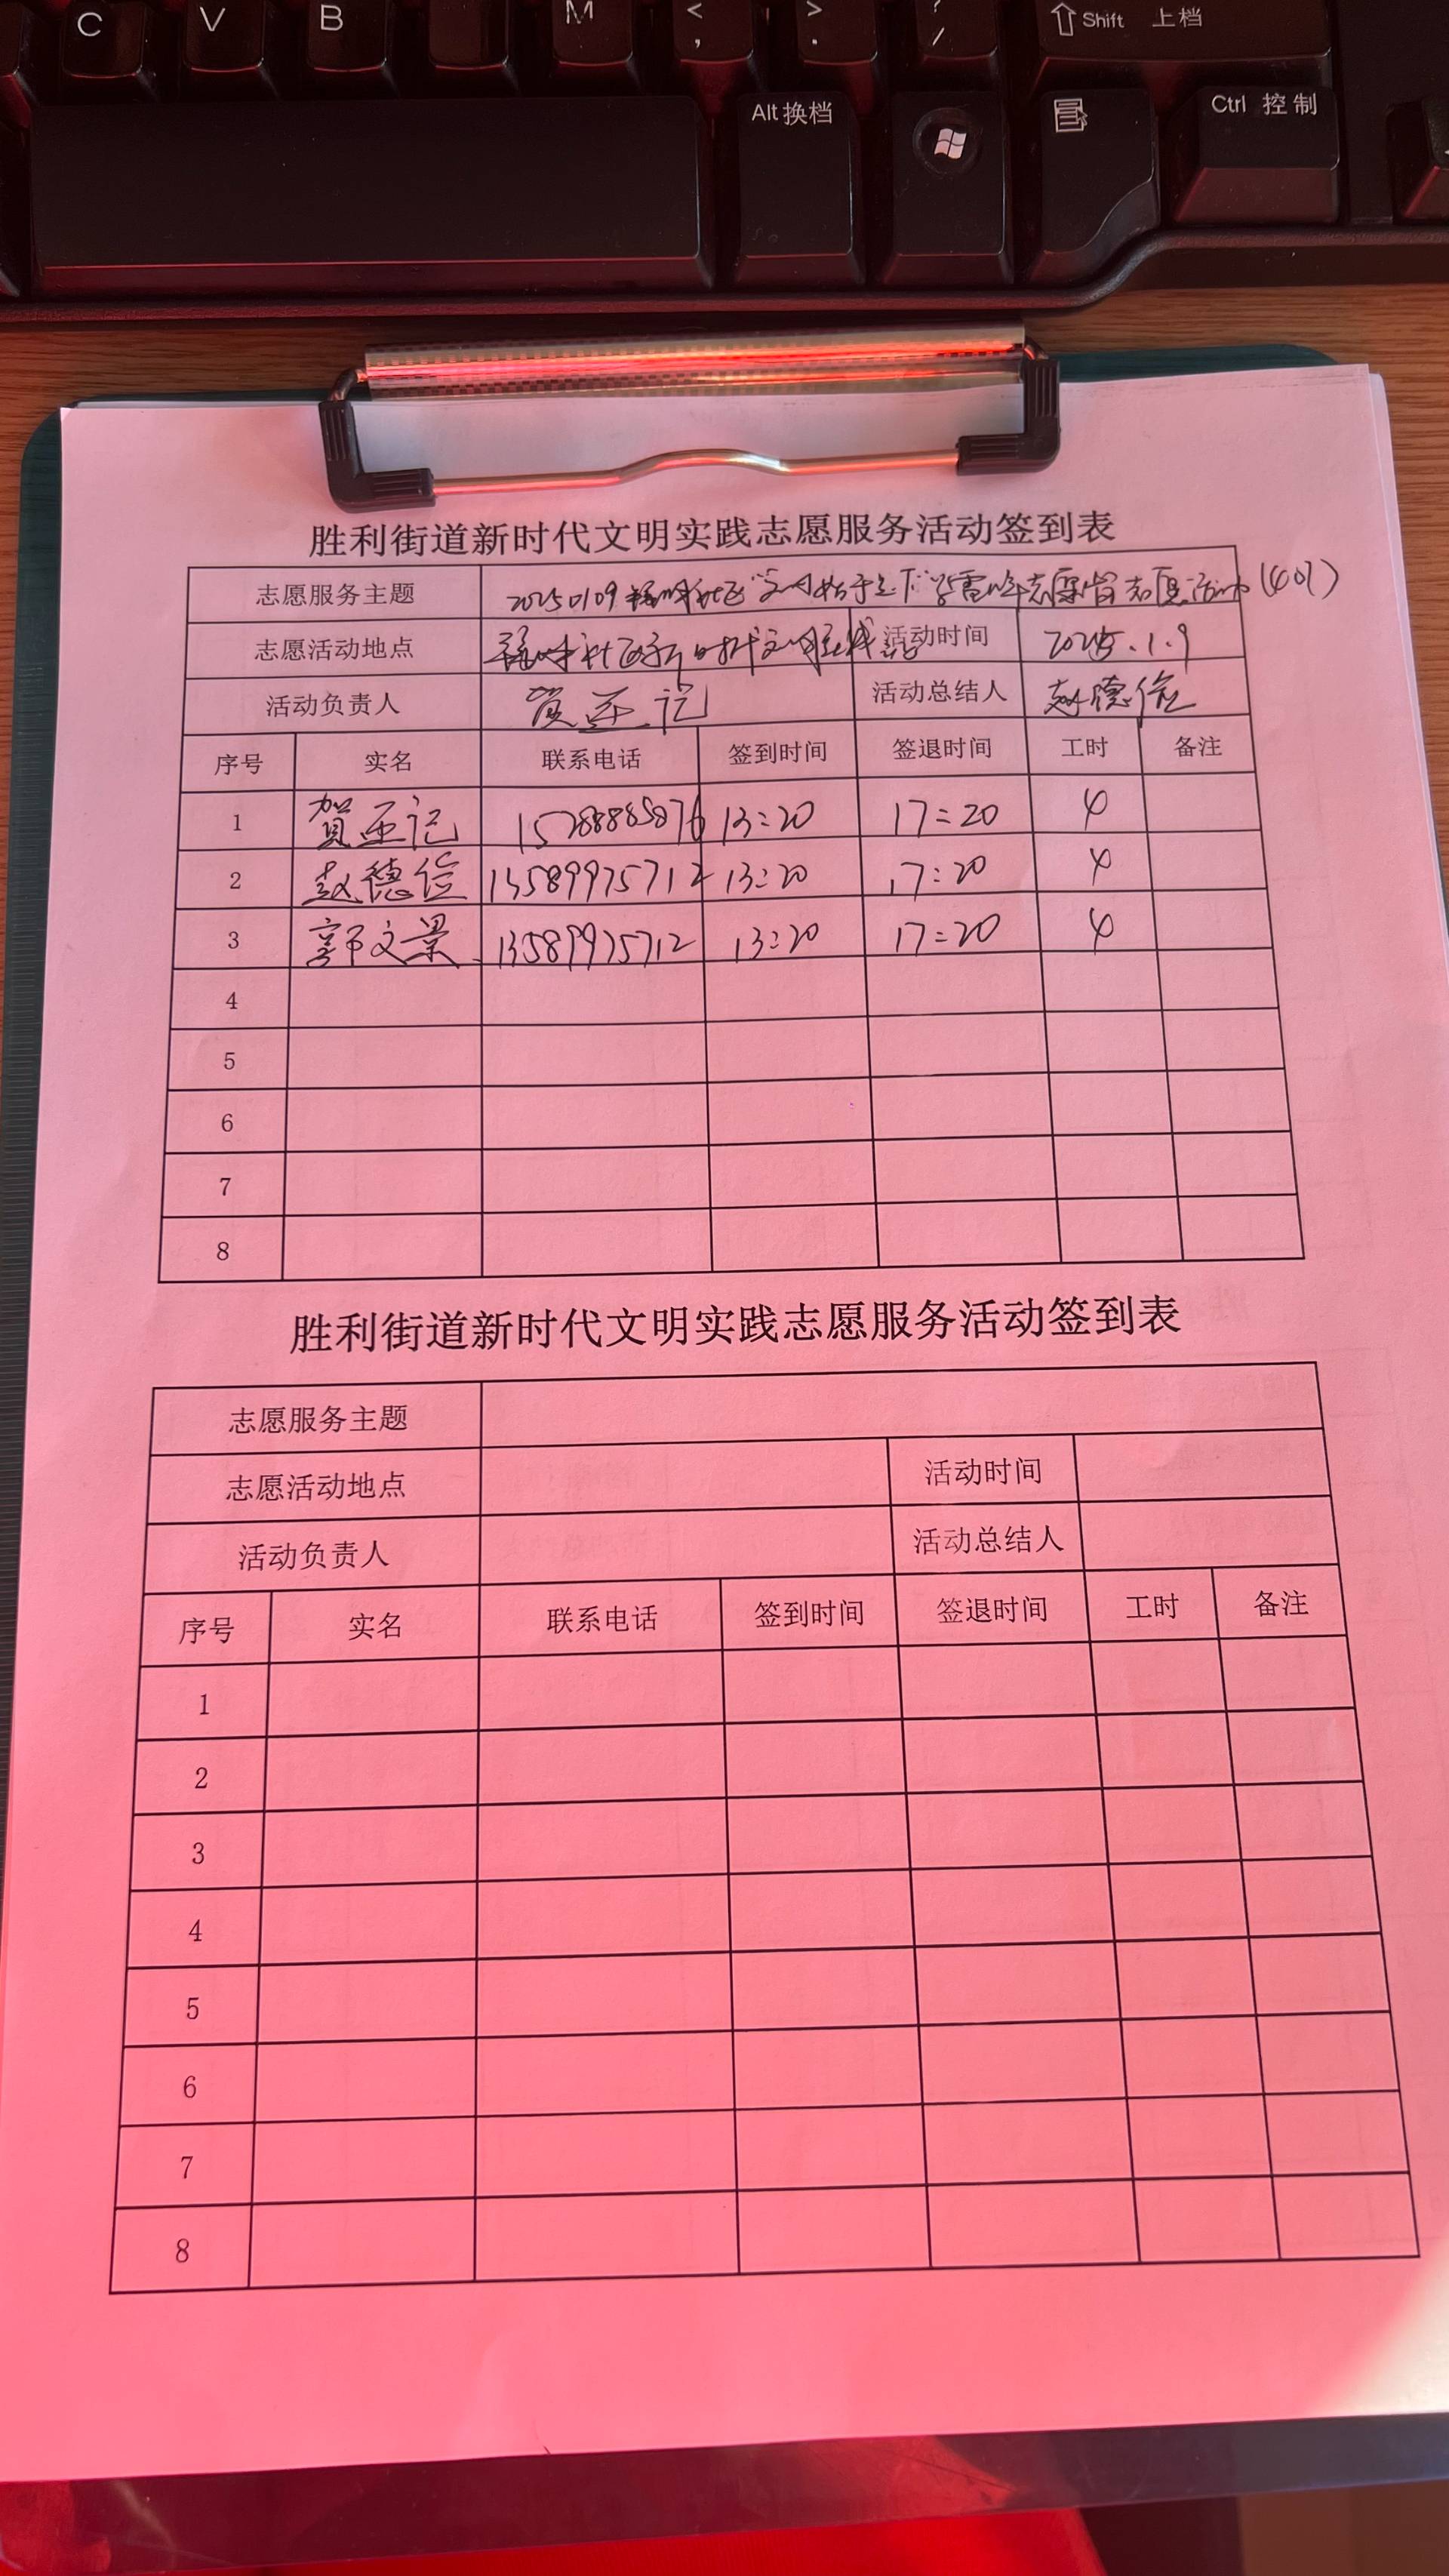 C V B M < , > . ? / Shift 上档
Alt换档 Ctrl 控制
胜利街道新时代文明实践志愿服务活动签到表
志愿服务主题 20250109 社区“文明始于足下”学雷锋志愿 志愿活动(401)
志愿活动地点 社区新时代文明实践 活动时间 2025.1.9
活动负责人 贺亚记 活动总结人 赵德俭
序号 实名 联系电话 签到时间 签退时间 工时 备注
1 贺亚记 15288885876 13:20 17:20 4
2 赵德俭 13589975712 13:20 17:20 4
3 郭文景 13589975712 13:20 17:20 4
4
5
6
7
8
胜利街道新时代文明实践志愿服务活动签到表
志愿服务主题
志愿活动地点 活动时间
活动负责人 活动总结人
序号 实名 联系电话 签到时间 签退时间 工时 备注
1
2
3
4
5
6
7
8